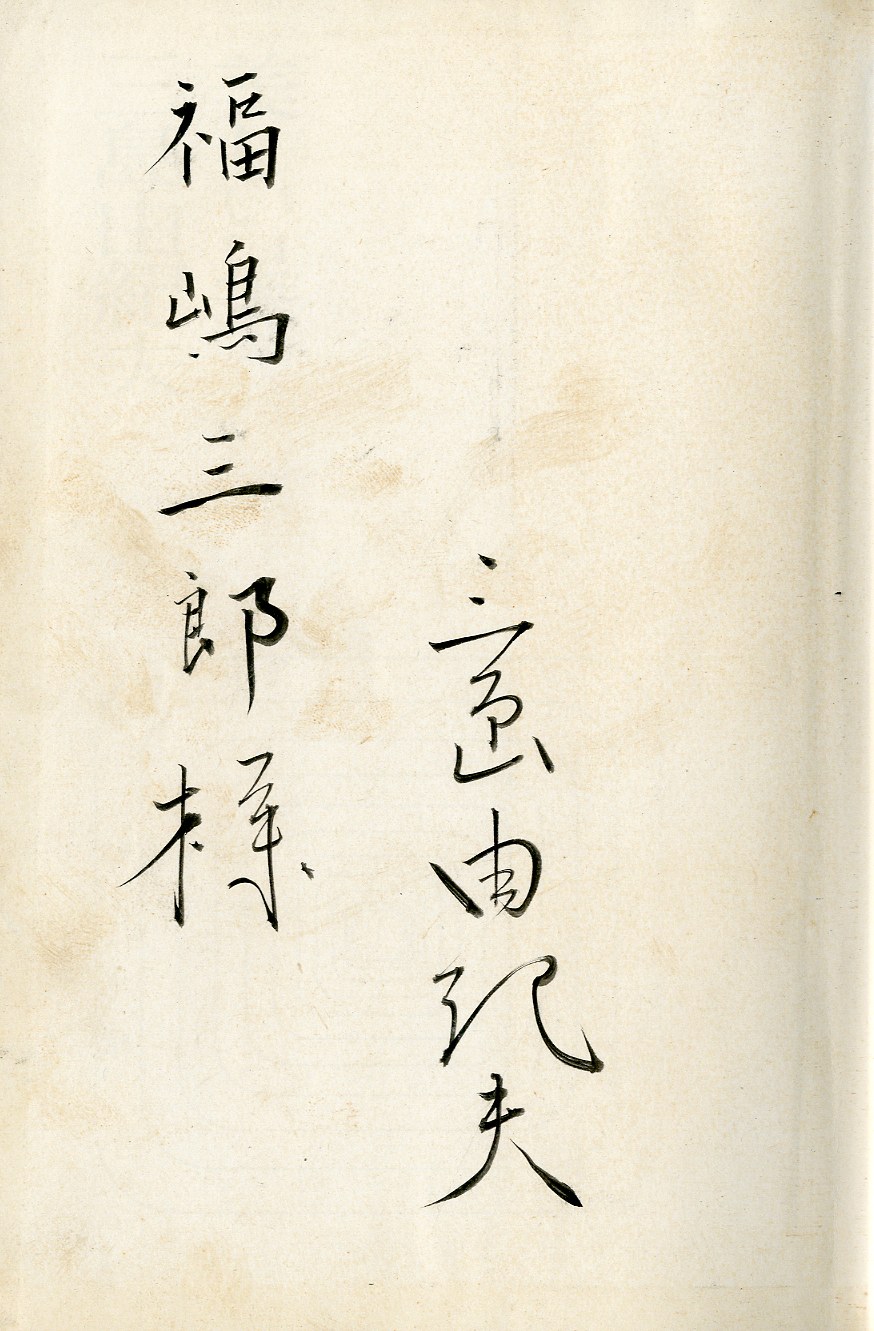 三島由紀夫
福嶋三郎様